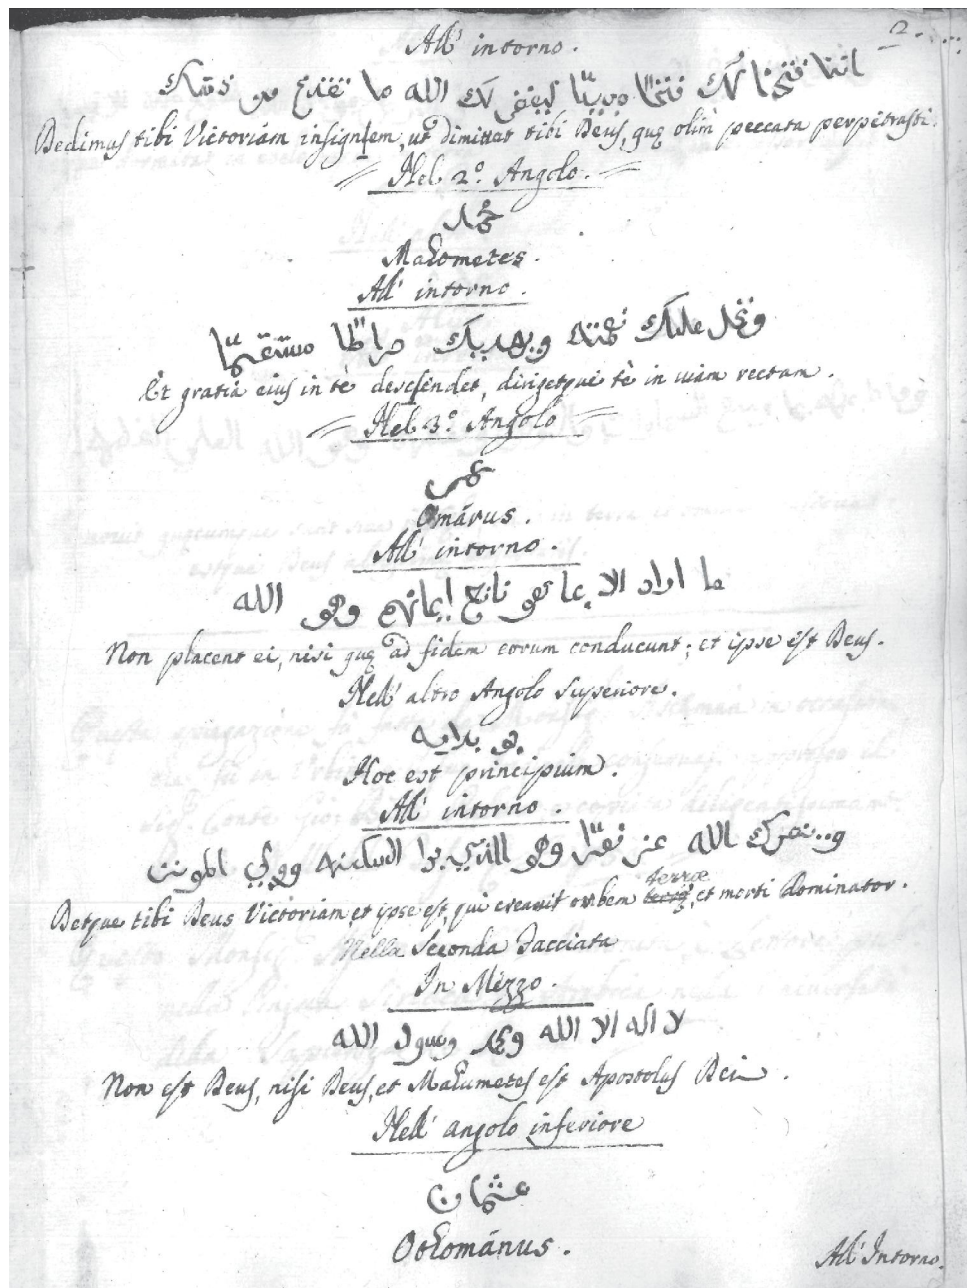 2.
All' intorno.
اننا فتحنا لك فتحًا مبينًا ليغفر لك الله ما تقدم من ذنبك
Dedimus tibi Victoriam insignem, ut dimittat tibi Deus, quę olim peccata perpetrasti.
Nel 2.º Angolo.
محمد
Mahometes.
All' intorno.
ونحل عليك نعمته ويهديك صراطًا مستقيمًا
Et gratia eius in tè descendet, dirigetque tè in viam rectam.
Nel 3.º Angolo
عمر
Omárus.
All' intorno.
ما اراد الا بما هو ناتج إيمانهم وهو الله
Non placent ei, nisi quę ad fidem eorum conducunt; et ipse est Deus.
Nell' altro Angolo Superiore.
هو بدايه
Hoc est principium.
All' intorno.
الله وهو الذي السكينه وولي الموت
Detque tibi Deus Victoriam, et ipse est, qui creavit orbem terræ, et morti Dominator.
Nella Seconda Facciata
In Mezzo.
لا اله الا الله ومحمد رسول الله
Non est Deus, nisi Deus, et Mahumetes est Apostolus Dei.
Nell' angolo inferiore
عثمان
Othománus.
All' Intorno.